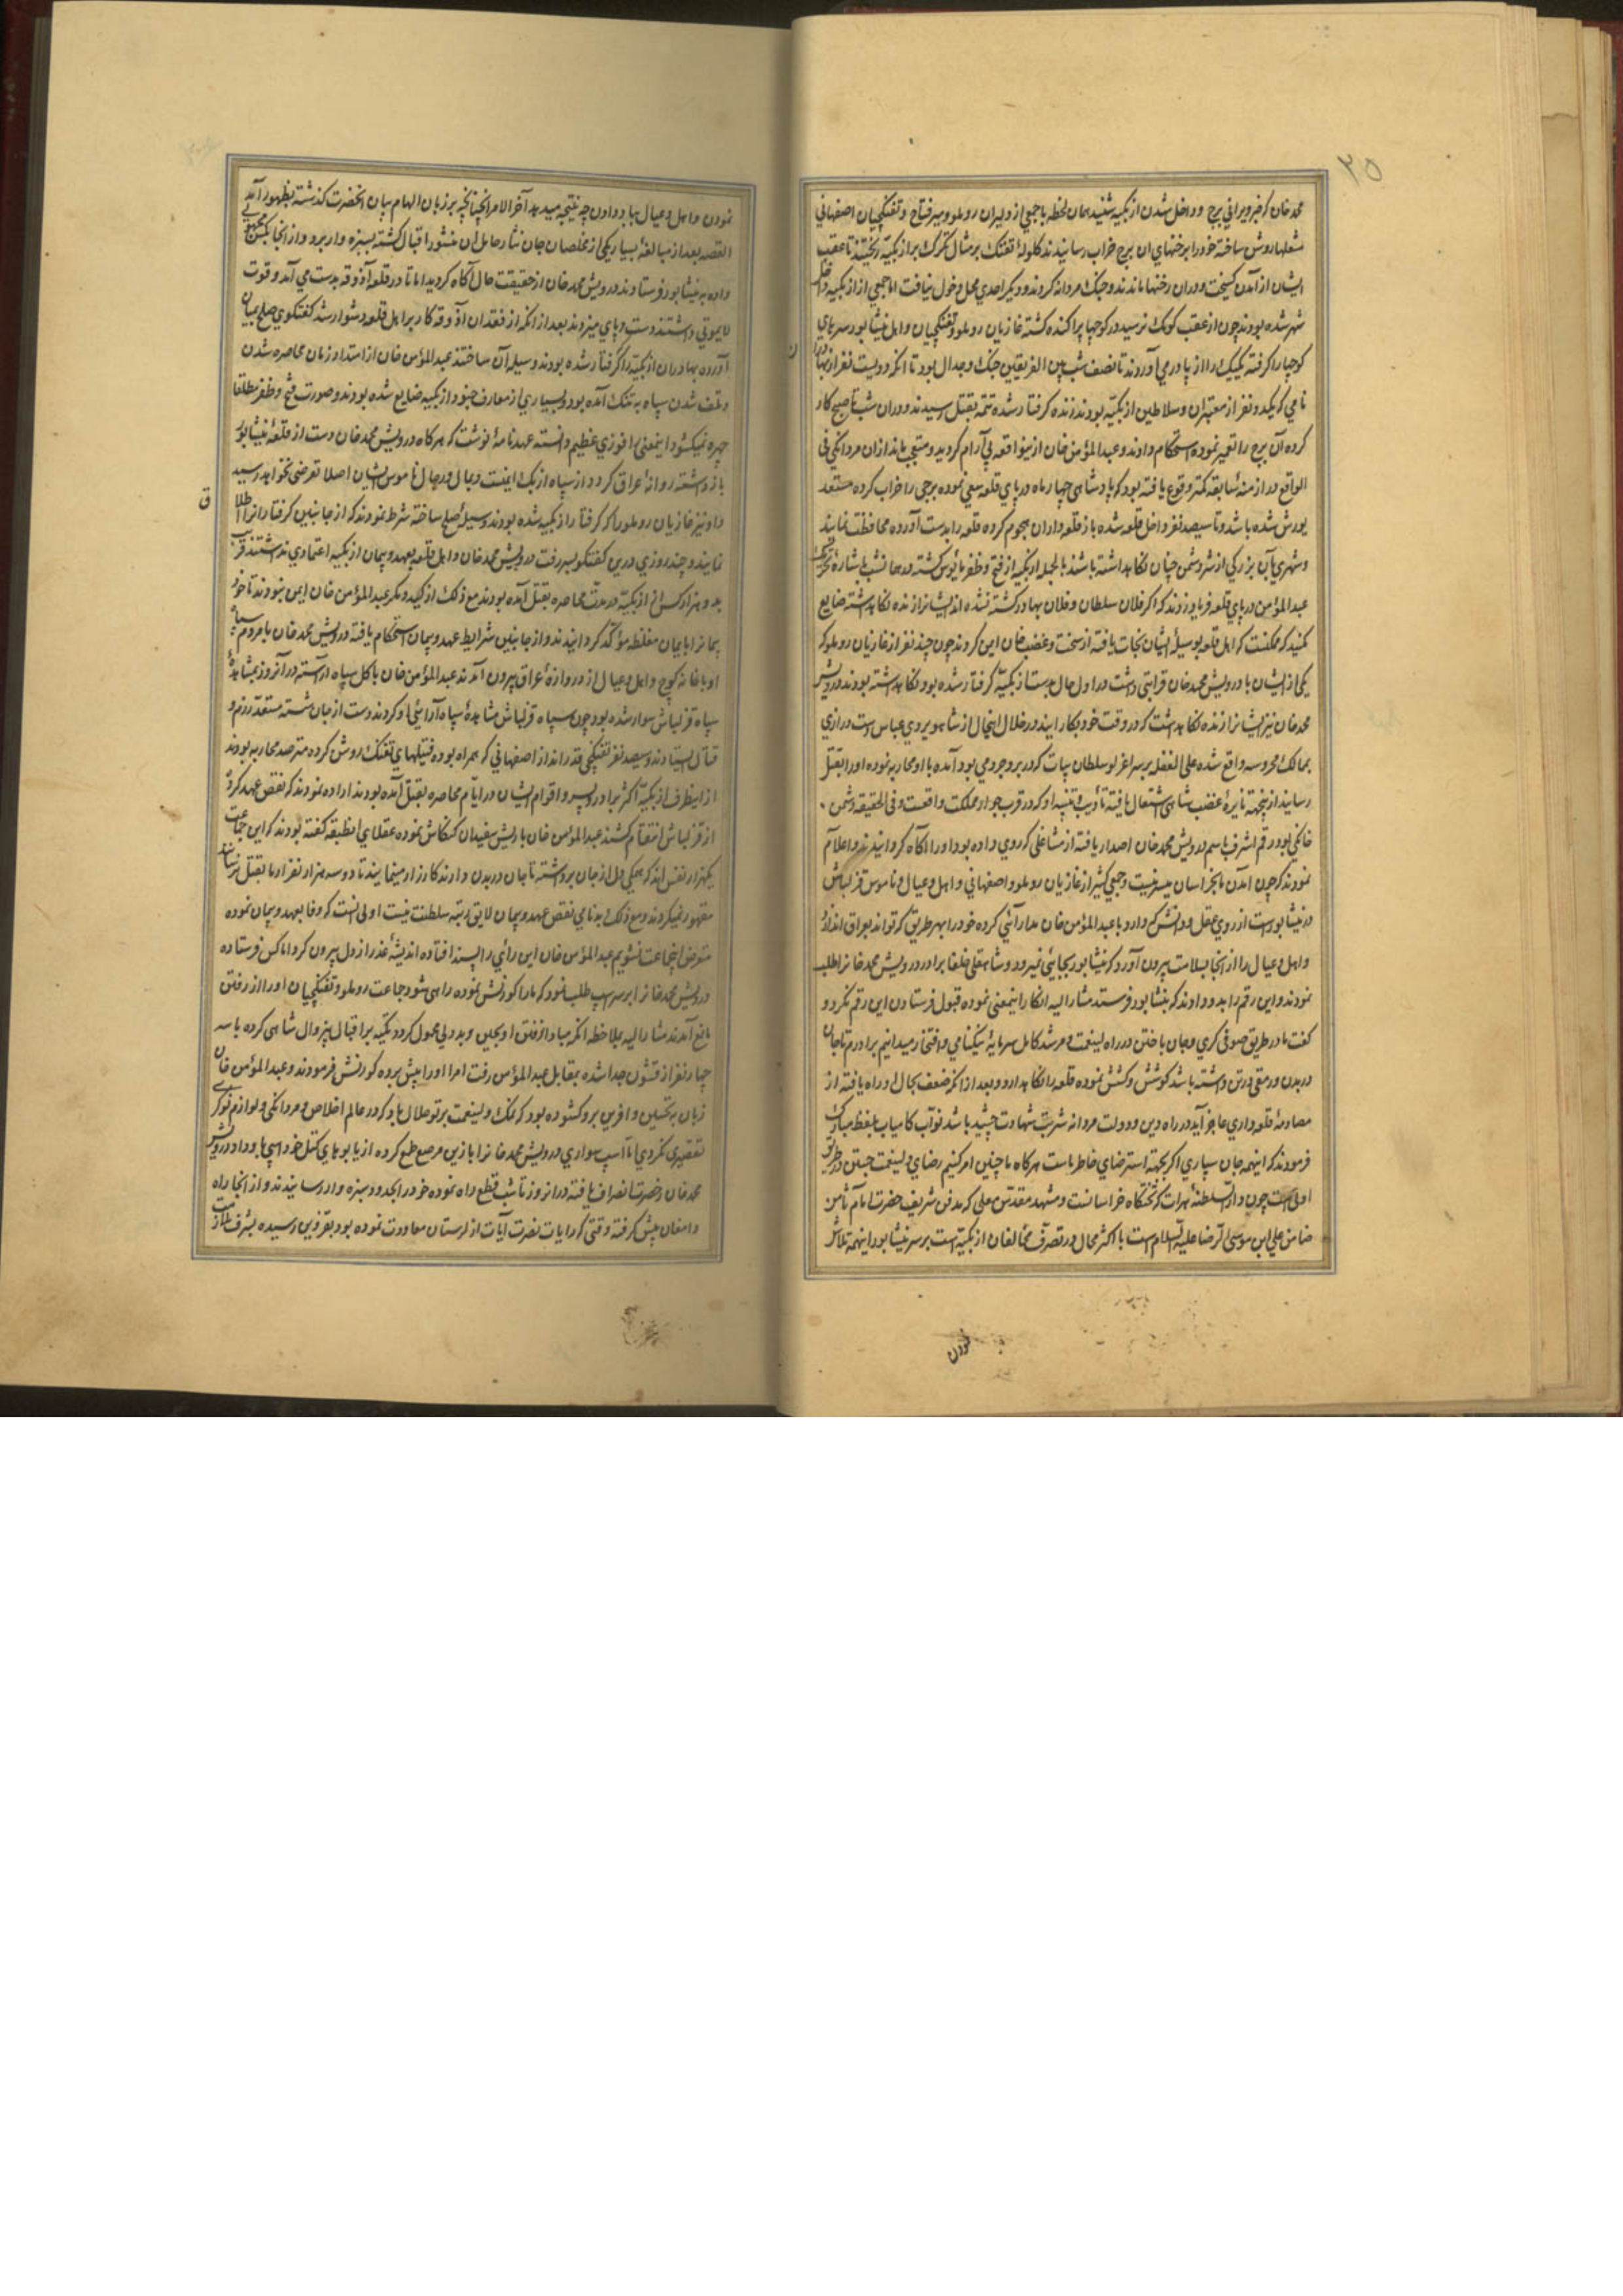 ۲۵
محمد خان که خبر ویرانی برج و داخل شدن ازبکیه شنید همان لحظه با جمعی از دلیران روملو و میر فتاح و تفنکچیان اصفهانی
مشعلها روشن ساخته خود را برخنهای ان برج خراب رسانیدند کلولهٔ تفنک بر مثال تکرک بر ازبکیه ریختند تا عقب
ایشان از آمدن کسیخت و دران رخنها ماندند و جنک مردانه کردند و دیکر احدی محل دخول نیافت اما جمعی از ازبکیه داخل
شهر شده بودند چون از عقب کومک نرسید در کوچها پراکنده کشته غازیان روملو و تفنکچیان و اهل نیشابور سرهای
کوچها را کرفته یکیک را از پا در می آوردند تا نصف شب بین الفریقین جنک و جدال بود تا انکه دویست نفر از بهادران
نامی که یکدو نفر از معتبران و سلاطین ازبکیه بودند زنده کرفتار شده تتمه بقتل رسیدند و دران شب تا صبح کار
کرده آن برج را تعمیر نموده استحکام دادند و عبد المؤمن خان ازینواقعه بی آرام کردید و متعجب ماند ازان مردانکی فی
الواقع در ازمنهٔ سابقه کمتر وقوع یافته بود که پادشاهی چهار ماه در پای قلعه سعی نموده برجی را خراب کرده مستعد
یورش شده باشد و تا سیصد نفر داخل قلعه شده باز قلعه داران هجوم کرده قلعه را بدست آورده محافظت نمایند
و شهری بآن بزرکی از شر دشمن چنان نکاهداشته باشند بالجمله ازبکیه از فتح و ظفر مأیوس کشته در همان شب باشارهٔ
عبد المؤمن در پای قلعه فریاد زدند که اکر فلان سلطان و فلان بهادر کشته نشده اند ایشانرا زنده نکاهداشته ضایع
مکنید که ممکنست که اهل قلعه بوسیلهٔ ایشان نجات یافته از سخت و غضب خان ایمن کردند چون چند نفر از غازیان روملو که
یکی از ایشان با درویش محمد خان قرابتی داشت در اول حال بدست ازبکیه کرفتار شده بود و نکاهداشته بودند درویش
محمد خان نیز ایشانرا زنده نکاهداشت که در وقت خود بکار ایند در خلال اینحال از شاهویردی عباس دست درازی
بممالک محروسه واقع شده علی الغفله بر سر اغزلو سلطان بیات که در بروجرد می بود آمده با او محاربه نموده او را بقتل
رسانید ازینجهة نایرهٔ غضب شاهی اشتعال یافته تأدیب و تنبیه او که در قرب جوار مملکت واقعست و فی الحقیقه دشمن
خانکی بود رقم اشرف باسم درویش محمد خان اصدار یافته از مشاغلی که روی داده بود او را آکاه کردانیدند و اعلام
نمودند که چون امدن ما بخراسان میسر نیست و جمعی کثیر از غازیان روملو و اصفهانی و اهل و عیال و ناموس قزلباش
در نیشابورست از روی عقل و دانش که دارد با عبد المؤمن خان مدارائی کرده خود را بهر طریق که تواند بعراق اندازد
و اهل و عیال را از انجا بسلامت بیرون آورد که نیشابور بجایی نمیرود و شاهقلی خلفا برادر درویش محمد خانرا طلب
نمودند و این رقم را بدو دادند که بنیشابور فرستد مشار الیه انکار اینمعنی نموده قبول فرستادن این رقم نکرد و
کفت ما در طریق صوفی کری و جان باختن در راه ولینعمت و مرشد کامل سرمایهٔ نیکنامی و افتخار میدانیم برادرم تا جان
در بدن و رمقی در تن داشته باشد کوشش و کشش نموده قلعه را نکاهدارد و بعد از انکه ضعف بحال او راه یافته از
مصادمهٔ قلعه داری عاجز آید در راه دین و دولت مردانه شربت شهادت چشیده باشد نواب کامیاب بلفظ مبارک
فرمودند که اینهمه جان سپاری اکر بجهة استرضای خاطر ماست هرکاه ما چنین امر کنیم رضای ولینعمت جستن در هر طریق
اولی است چون دار السلطنهٔ هرات که تختکاه خراسانست و مشهد مقدس معلی که مدفن شریف حضرت امام ثامن
ضامن علی ابن موسی الرضا علیه السلام است با اکثر محال در تصرف مخالفان ازبکیه است بر سر نیشابور اینهمه تلاش
نمودن
ن
نمودن و اهل و عیال بباد دادن چه نتیجه میدهد آخر الامر انچنانچه بر زبان الهام بیان انحضرت کذشته بظهور آمد
القصه بعد از مبالغهٔ بسیار یکی از مخلصان جان نثار حامل ان منشور اقبال کشته بسبزه وار برد و از انجا بکس مجهولی
داده به نیشابور فرستادند و درویش محمد خان از حقیقت حال آکاه کردید اما تا در قلعه آذوقه بدست می آمد و قوت
لایموتی داشتند دست و پای میزدند بعد از انکه از فقدان آذوقه کار بر اهل قلعه دشوار شد کفتکوی صلح بمیان
آورده بهادران ازبکیه را که کرفتار شده بودند وسیلهٔ آن ساختند عبد المؤمن خان از امتداد زمان محاصره شدن
و تلف شدن سپاه به تنک آمده بود و بسیاری از معارف جنود ازبکیه ضایع شده بودند و صورت فتح و ظفر مطلقا
چهره نمیکشود اینمعنی را فوزی عظیم دانسته عهدنامهٔ نوشت که هرکاه درویش محمد خان دست از قلعهٔ نیشابور
باز داشته روانهٔ عراق کردد از سپاه ازبک ایمنست و بمال و رجال ناموس ایشان اصلا تعرضی نخواهد رسید
و او نیز غازیان روملو را که کرفتار ازبکیه شده بودند وسیلهٔ صلح ساخته شرط نمودند که از جانبین کرفتارانرا اطلاق
ق
نمایند و چند روزی درین کفتکو بسر رفت درویش محمد خان و اهل قلعه بعهد و پیمان ازبکیه اعتمادی نداشتند قریب
بدو هزار کس از ازبکیه در مدت محاصره بقتل آمده بودند مع ذلک از کید و مکر عبد المؤمن خان ایمن نبودند تا خود
پیمانرا بایمان مغلظه مؤکد کردانیدند و از جانبین شرایط عهد و پیمان استحکام یافته درویش محمد خان با مردم سپاه
او با خانه کوچ و اهل و عیال از دروازهٔ عراق بیرون آمدند عبد المؤمن خان با کل سپاه اراسته در آنروز بمشاهدهٔ
سپاه قزلباش سوار شده بود چون سپاه قزلباش مشاهدهٔ سپاه آرائی او کردند دست از جان شسته مستعد رزم و
قتال ایستادند و سیصد نفر تفنکچی قدر انداز اصفهانی که همراه بوده فتیلهای تفنک روشن کرده مترصد محاربه بودند
از اینطرف ازبکیه اکثر برادر و پسر و اقوام ایشان در ایام محاصره بقتل آمده بودند اراده نمودند که نقض عهد کرده
از قزلباش انتقام کشند عبد المؤمن خان با ریش سفیدان کنکاش نموده عقلای انطبقه کفته بودند که این جماعت
یکهزار نفس اند که همکی دل از جان برداشته تا جان در بدن دارند کارزار مینمایند تا دو سه هزار نفر از ما بقتل نرسانند
مقهور نمیکردند و مع ذلک بدنامی نقض عهد و پیمان لایق رتبهٔ سلطنت نیست اولی انست که وفا بعهد و پیمان نموده
متعرض اینجماعت نشویم عبد المؤمن خان این رأی را پسند افتاده اندیشهٔ غدر از دل بیرون کرد اما کس فرستاده
درویش محمد خانرا بر سر اسب طلب نمود که ما را کورنش نموده راهی شود جماعت روملو و تفنکچیان او را از رفتن
مانع آمدند مشار الیه بملاحظه انکه مبادا از نرفتن او بجبن و بد دلی محمول کردد تکیه بر اقبال بیزوال شاهی کرده با سه
چهار نفر از قشون جدا شده بمقابل عبد المؤمن رفت امرا او را پیش برده کورنش فرمودند و عبد المؤمن خان
زبان به تحسین و افرین برو کشوده بود که نمک ولینعمت برتو حلال باد که در عالم اخلاص و مردانکی و لوازم نوکری
تقصیری نکردی اما اسپ سواری درویش محمد خانرا با زین مرصع طمع کرده از یابوهای کتل خود اسپی باو داد درویش
محمد خان رخصت انصراف یافته درانروز تا شب قطع راه نموده خود را بحدود سبزه وار رسانیدند و از انجا راه
دامغان پیش کرفته وقتی که رایات نصرت آیات از لرستان معاودت نموده بود بقزوین رسیده بشرف ملازمت